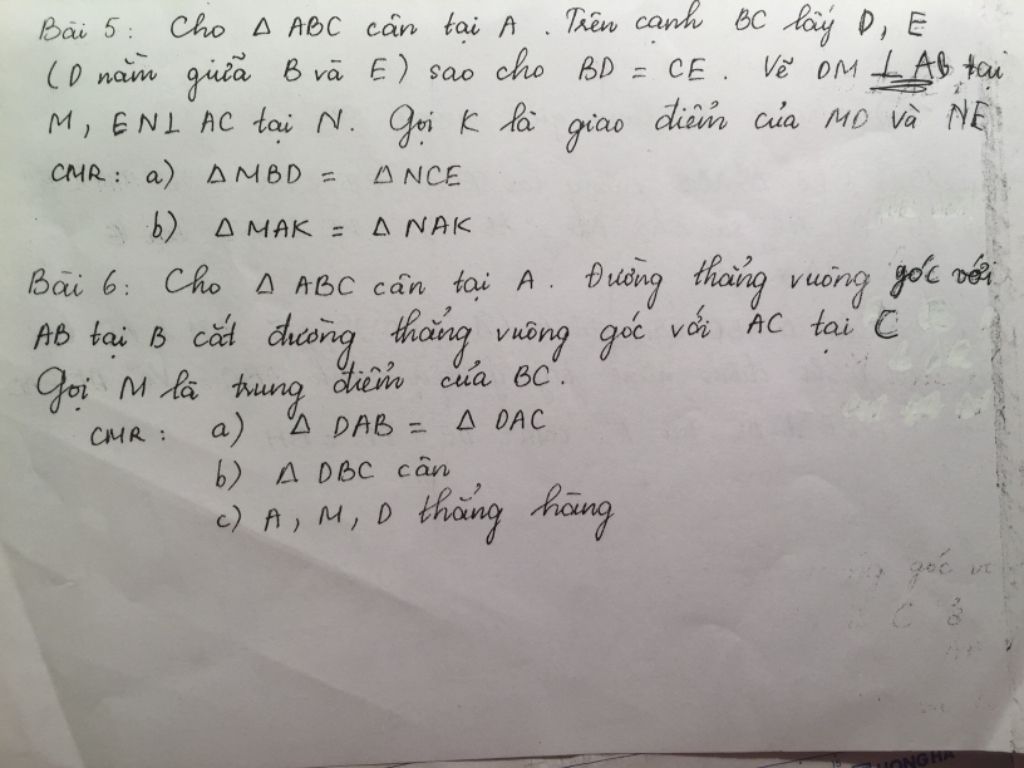 Bài 5: Cho Δ ABC cân tại A. Trên cạnh BC lấy D, E
(D nằm giữa B và E) sao cho BD = CE. Vẽ DM ⊥ AB tại
M, EN⊥ AC tại N. Gọi K là giao điểm của MD và NE
CMR: a) Δ MBD = Δ NCE
b) Δ MAK = Δ NAK
Bài 6: Cho Δ ABC cân tại A. Đường thẳng vuông góc với
AB tại B cắt đường thẳng vuông góc với AC tại C
Gọi M là trung điểm của BC.
CMR: a) Δ DAB = Δ DAC
b) Δ DBC cân
c) A, M, D thẳng hàng
góc
C ở
HONG HA